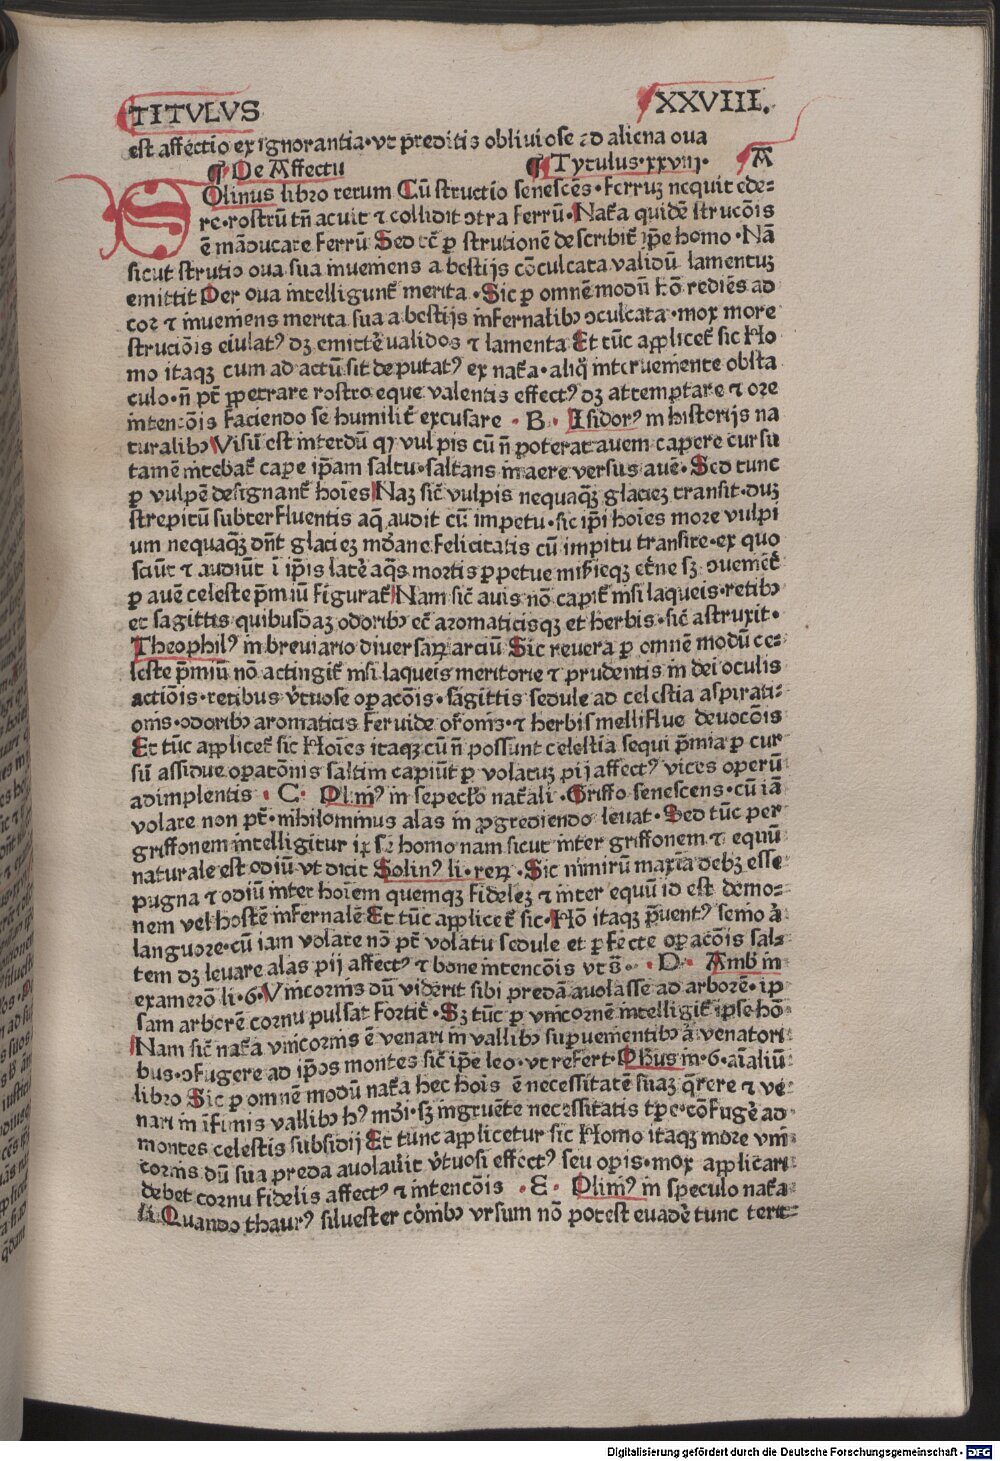 TITVLVS XXVIII.
est affectio ex ignorantia·vt p̄reditis obliuiose ad aliena oua
¶ De Affectu ¶ Tytulus·xxviij· A
SOlinus libro rerum Cū structio senescēs·ferruꝫ nequit ede⸗
re·rostrū tn̄ acuit ⁊ collidit ↄtra ferrū·Nat̄a quidē strucōis
ē māducare ferrū Sed tc̄ ꝑ strutionē describit̄ ip̄e homo·Nā
sicut strutio oua sua inueniens a bestijs cōculcata validū lamentuꝫ
emittit Per oua intelligunt̄ merita·Sic ꝑ omnē modū hō rediēs ad
cor ⁊ inueniens merita sua a bestijs infernalibꝰ ↄculcata·mox more
strucōis eiulatꝰ dꝫ emittē validos ⁊ lamenta Et tūc applicet̄ sic Ho
mo itaqꝫ cum ad actū sit deputatꝰ ex nat̄a·aliq̄ interueniente obsta
culo·n̄ pt̄ ꝑpetrare rostro eque valentis effectꝰ dꝫ attemptare ⁊ ore
intencōis faciendo se humilit̄ excusare ·B· Isidorꝰ in historijs na
turalibꝰ Visū est interdū qꝙ vulpis cū n̄ poterat auem capere cursu
tamē nitebat̄ capē ip̄am saltu·saltans in aere versus auē·Sed tunc
ꝑ vulpē designant̄ hoīes Naꝫ sic̄ vulpis nequaqꝫ glacieꝫ transit·duꝫ
strepitū subterfluentis aq̄ audit cū impetu·sic ip̄i hoīes more vulpi
um nequaqꝫ dn̄t glacieꝫ mōdane felicitatis cū impitu transire·ex quo
sciūt ⁊ audiūt ī ip̄is latē aq̄s mortis ꝑpetue
ꝑ auē celeste p̄miū figurat̄ Nam sic̄ auis nō capit̄ nisi laqueis·retibꝰ
et sagittis quibusdaꝫ odoribꝰ ec̄ aromaticisqꝫ et herbis·sic̄ astruxit·
Theophilꝰ in breuiario diuersaꝝ arciū Sic reuera ꝑ omnē modū ce⸗
leste p̄miū nō attingit̄ nisi laqueis meritorie ⁊ prudentis in dei oculis
actiōis·retibus v̄tuose opacōis·sagittis sedule ad celestia aspirati⸗
onis·odoribꝰ aromaticis feruide or̄onis·⁊ herbis melliflue deuocōis
Et tūc applicet̄ sic Hoīes itaqꝫ cū n̄ possunt celestia sequi p̄mia ꝑ cur
sū assidue oꝑatōnis saltim capiūt ꝑ volatuꝫ pij affectꝰ vices operū
adimplentis ·C· Plinꝰ in sepeclo nat̄ali·Griffo senescens·cū iā
volare non pt̄·nihilominus alas in ꝓgrediendo leuat·Sed tūc per
griffonem intelligitur ip̄se homo nam sicut inter griffonem ⁊ equū
naturale est odiū vt dicit Solinꝰ li·reꝝ·Sic nimirū maxīa debꝫ esse
pugna ⁊ odiū inter hoīem quemqꝫ fideleꝫ ⁊ inter equū id est demo⸗
nem vel hostē infernalē Et tūc applicet̄ sic·Hō itaqꝫ p̄uentꝰ senio a
languore·cū iam volare nō pt̄ volatu sedule et ꝑfecte oꝑacōis sal⸗
tem dꝫ leuare alas pij affectꝰ ⁊ bone intencōis vt s̄· ·D· Amb̄ in
examerō li·6·Vnicornis dū viderit sibi predā auolasse ad arborē·ip
sam arborē cornu pulsat fortit̄·Sꝫ tūc ꝑ vnicornē intelligit̄ ipse hō·
Nam sic̄ nat̄a vnicornis ē venari in vallibꝰ suꝑuenientibꝰ a venatori
bus·ↄfugere ad ip̄os montes sic̄ ip̄e leo·vt refert·Pl̄ius in·6·aīaliū
libro Sic ꝑ omnē modū nat̄a hec hoīs ē necessitatē suaꝫ q̄rere ⁊ ve⸗
nari in īfimis vallibꝰ hꝰ mōi·sꝫ ingruēte necessitatis tp̄e·cōfugē ad
montes celestis subsidij Et tunc applicetur sic Homo itaqꝫ more vni⸗
cornis dū sua preda auolauit v̄tuosi effectꝰ seu opis·mox applicari
debet cornu fidelis affectꝰ ⁊ intencōis ·E· Plinꝰ in speculo nat̄a
li·Quando thaurꝰ siluester cōmbꝰ vrsum nō potest euadē tunc terit⸗
Digitalisierung gefördert durch die Deutsche Forschungsgemeinschaft - DFG